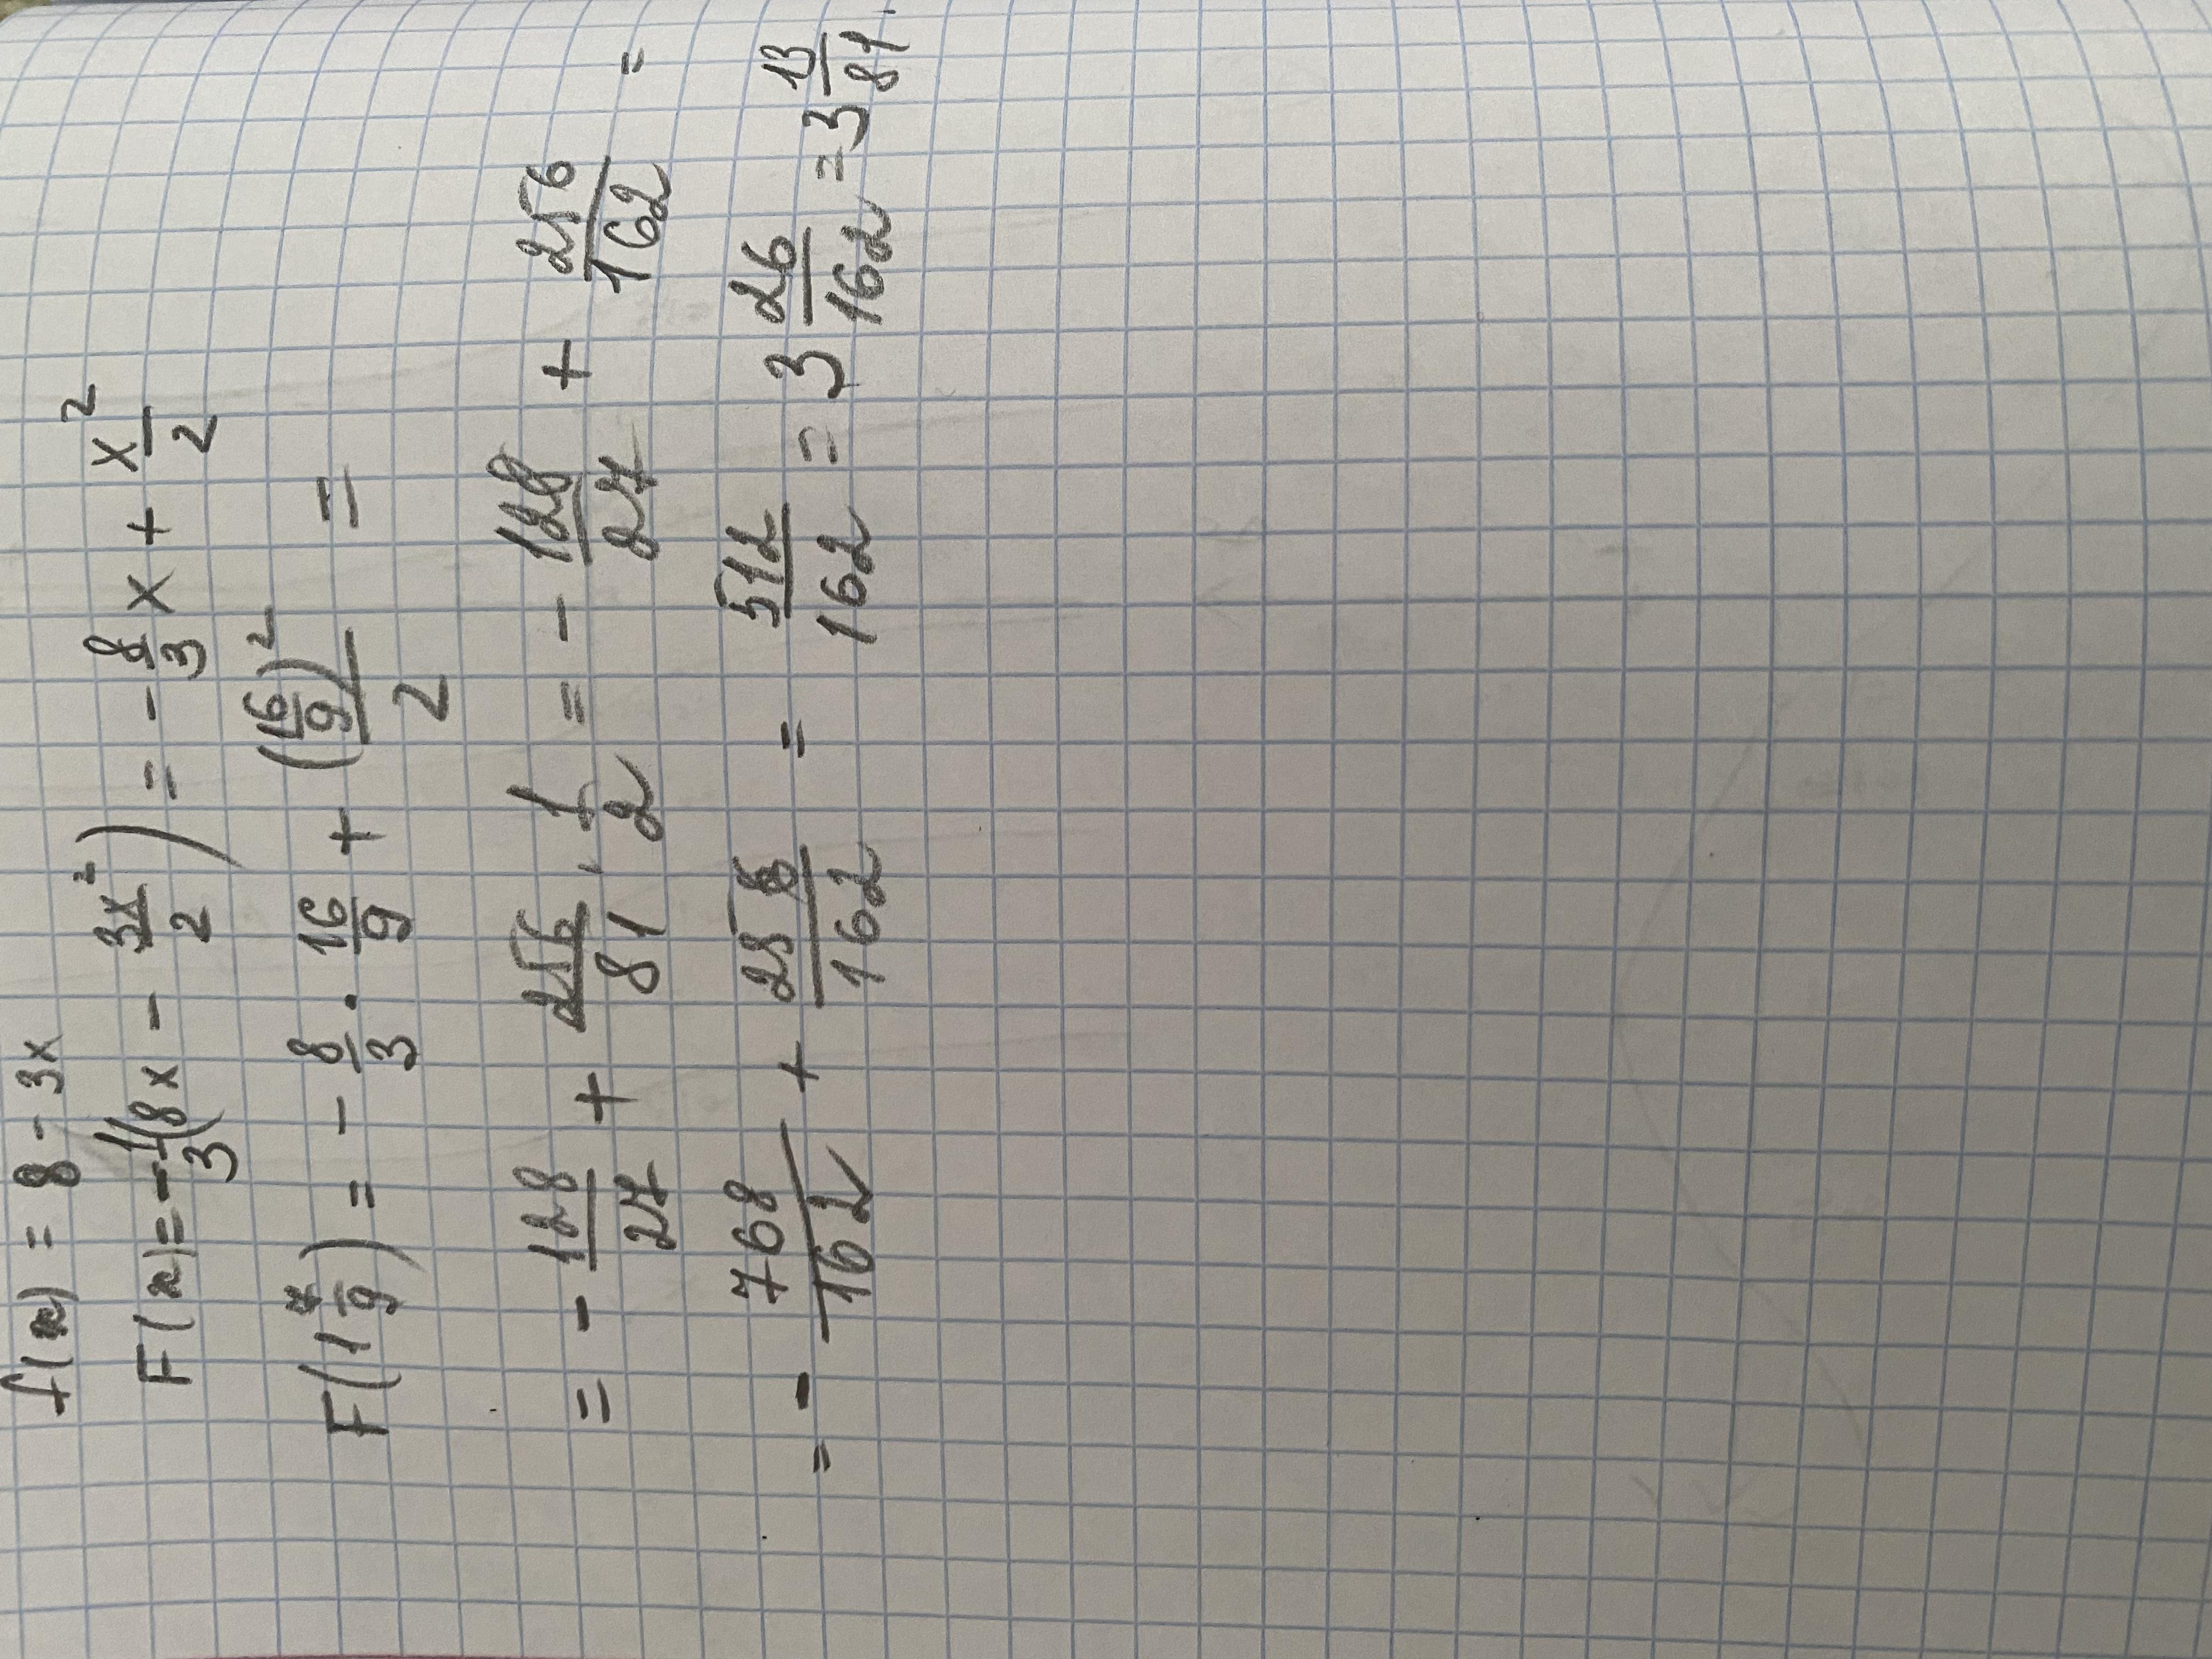 f(x) = 8 - 3x
F(x) = -1/3(8x - 3x²/2) = -8/3 x + x²/2
F(1 7/9) = -8/3 · 16/9 + (16/9)²/2 =
= -128/27 + 256/81 · 1/2 = -128/27 + 256/162 =
= -768/162 + 256/162 = 512/162 = 3 26/162 = 3 13/81